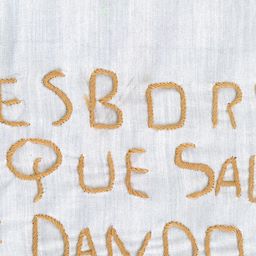 ESBOR
QUE SAL
DANDO